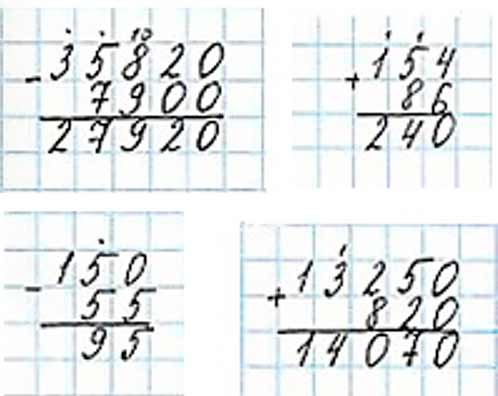 10
- 35820
7900
27920
1 1
+ 154
86
240
- 150
55
95
1
+ 13250
820
14070